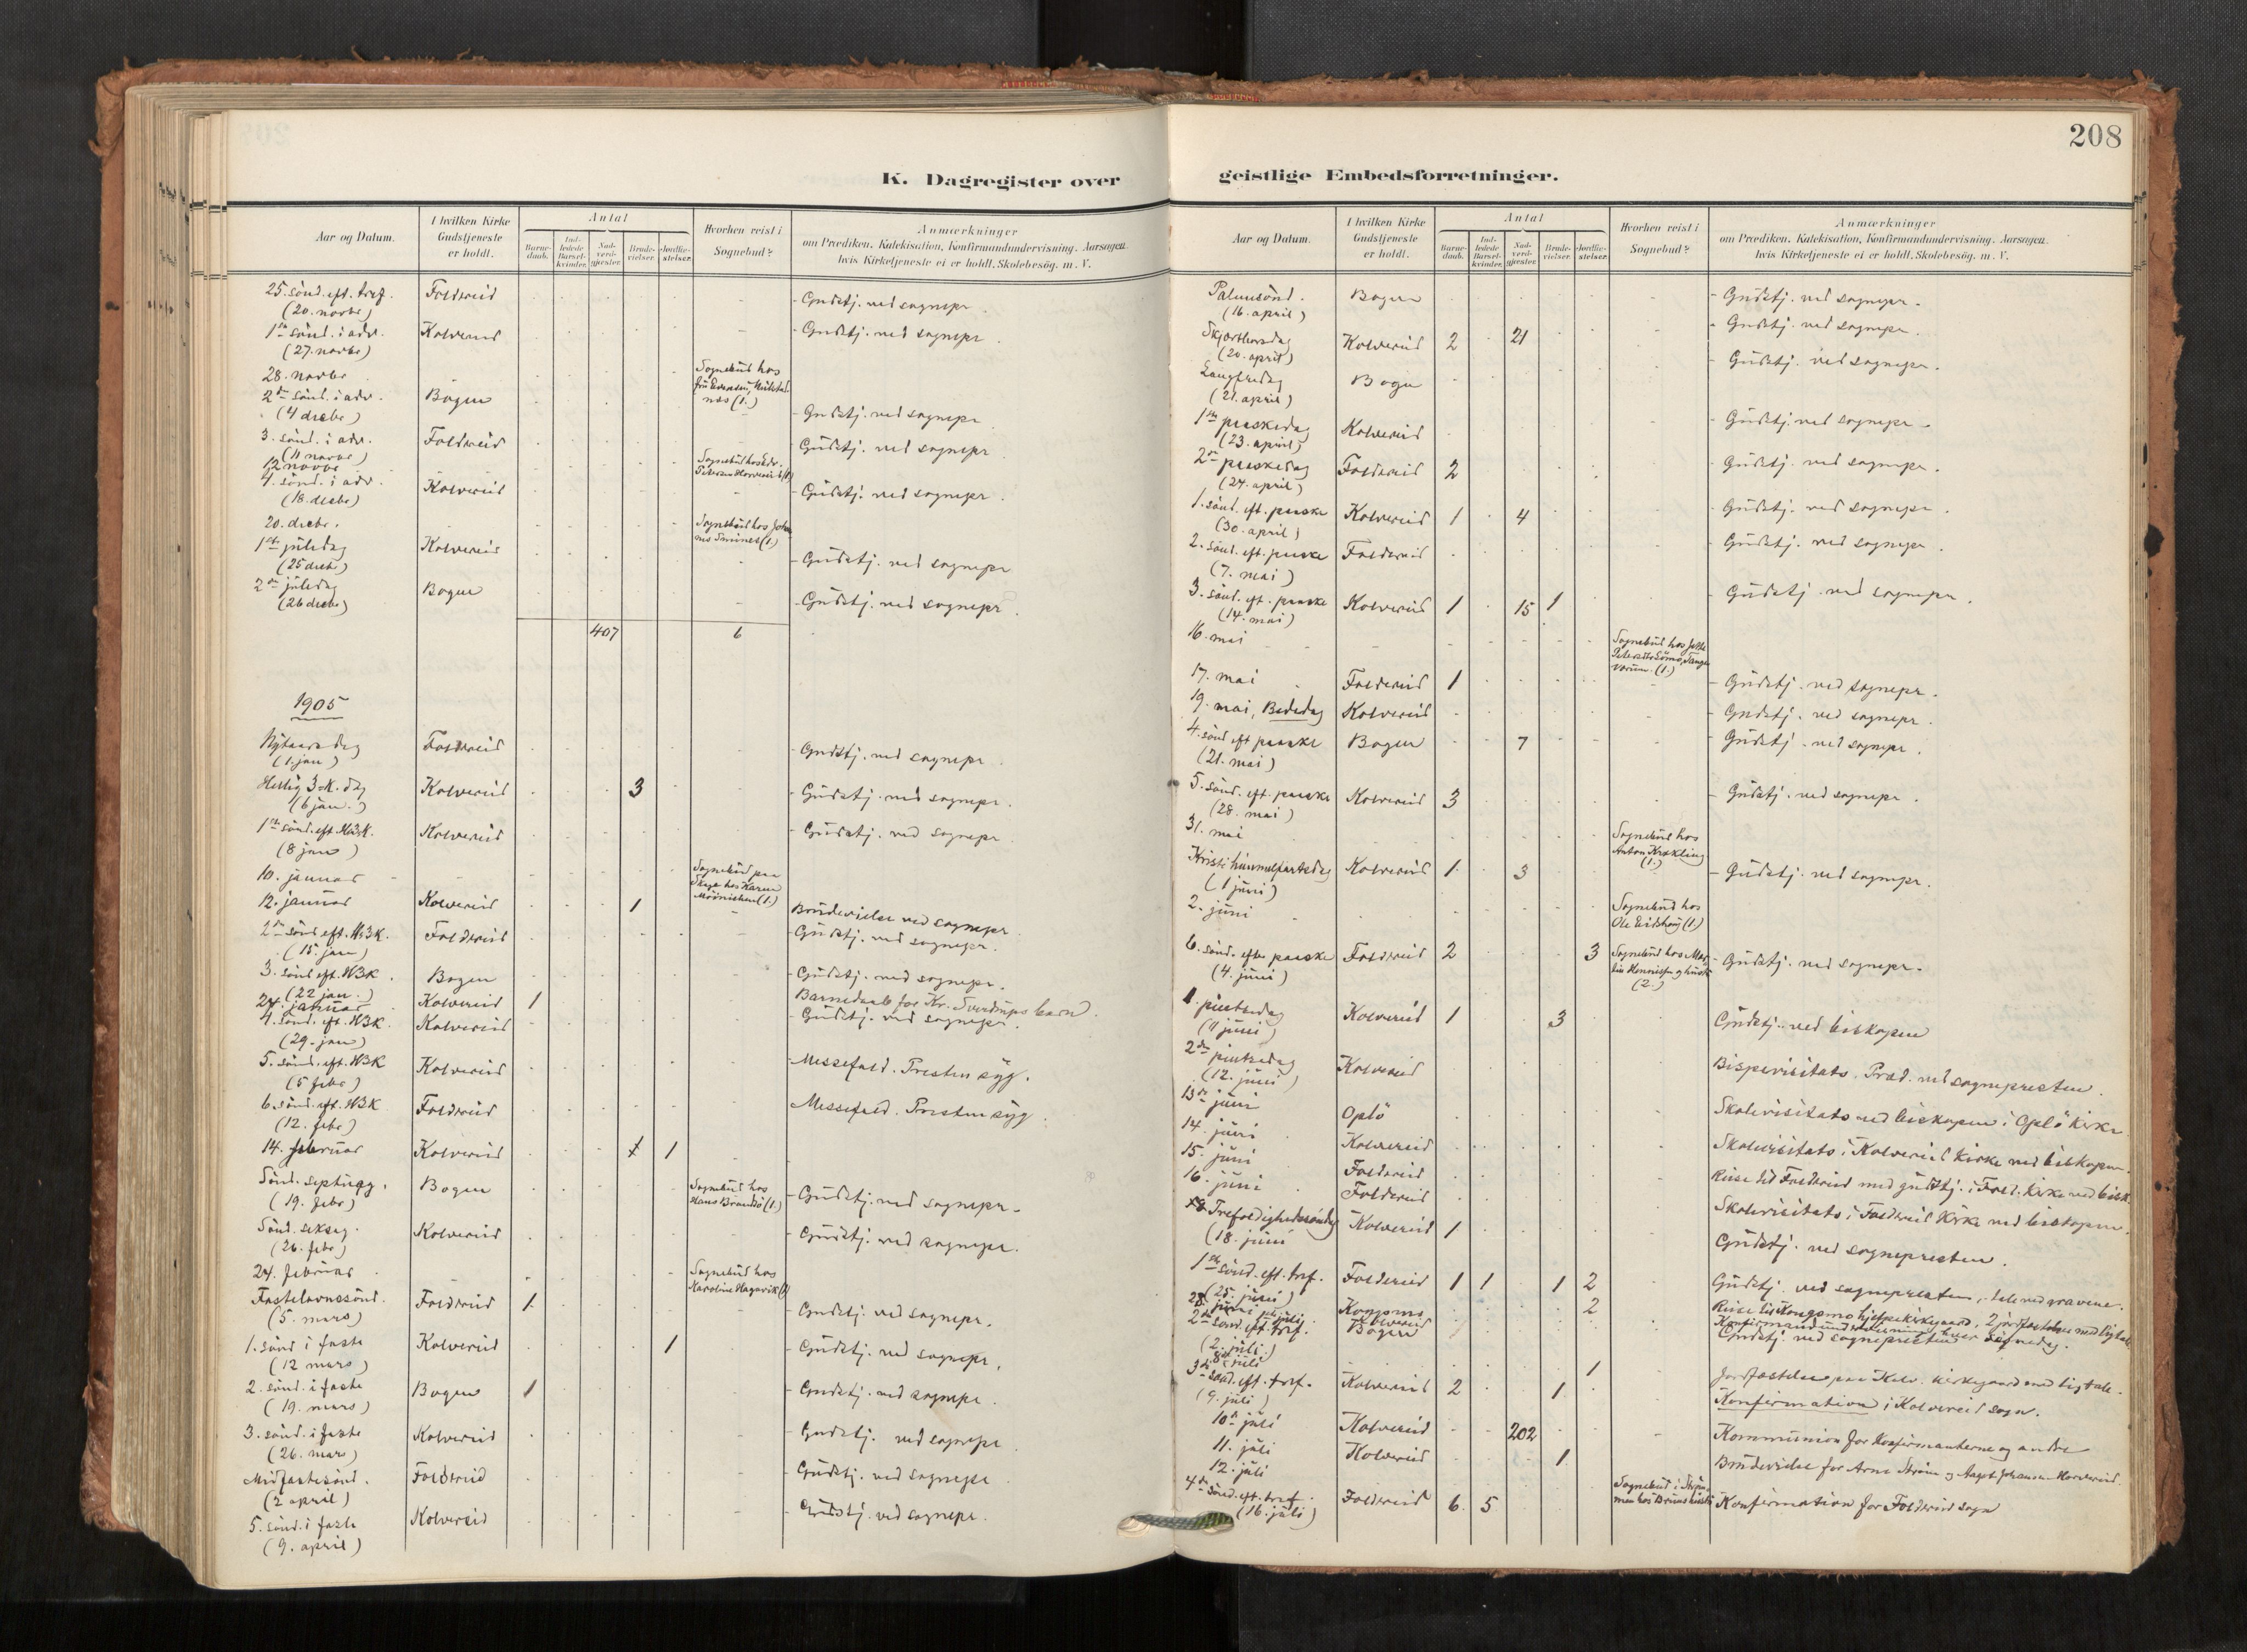 208
K. Dagregister over
geistlige Embedsforretninger.
Aar og Datum.
I hvilken Kirke
Gudstjeneste
er holdt.
Antal
Barne-
daab.
Ind-
ledede
Barsel-
kvinder.
Nad-
verd-
gjester.
Brude-
vielser.
Jordfæ-
stelser.
Hvorhen reist i
Sognebud?
Anmærkninger
om Prædiken, Katekisation, Konfirmandundervisning. Aarsagen
hvis Kirketjeneste ei er holdt. Skolebesøg. m. V.
25. sönd. eft. tref. Foldereid
(20. novbr) - Gudstj. ved sognepr.
1ste sönd. i adv. Kolvereid - Gudstj. ved sognepr.
(27. novbr)
28. novbr Sognebud hos
2den sönd. i adv. Bogen næs (1.)
(4 decbr) - Gudstj. ved sognepr.
3. sönd. i adv. Foldereid - Gudstj. ved sognepr.
(11 novbr)
12 novbr Sognebud hos
4. sönd. i adv. Kolvereid - Gudstj. ved sognepr.
(18. decbr)
20. decbr. Sognebud hos
1ste juledag Kolvereid (1.)
(25 decbr) - Gudstj. ved sognepr
2den juledag Bogen - Gudstj. ved sognepr.
(26 decbr)
407 6
1905
Nytaarsdag Foldereid - Gudstj. ved sognepr.
(1. jan)
Hellig 3-K. dag Kolvereid 3 - Gudstj. ved sognepr.
(6 jan.)
1ste sönd. eft. H3K. Kolvereid - Gudstj. ved sognepr
(8 jan)
10. januar Sognebud paa
hos Karen
(1.)
12. januar Kolvereid 1 Brudevielse ved sognepr.
2den sönd eft. H3K. Foldereid - Gudstj. ved sognepr.
(15. jan)
3. sönd eft. H3K. Bogen - Gudstj. ved sognepr.
(22 jan.)
24. januar Kolvereid 1 Barnedaab for Kr. Sverdrups barn.
4. sönd. eft. H3K. Kolvereid - Gudstj. ved sognepr.
(29. jan)
5. sönd. eft. H3K Kolvereid - Messefald. Presten syg.
(5 febr)
6. sönd. eft. H3K Foldereid Messefald. Presten syg.
(12. febr)
14. februar Kolvereid 1 1
Sönd. septuag. Bogen Sognebud hos
Hans Brandsö (1.) - Gudstj. ved sognepr.
(19. febr)
Sönd. seksag. Kolvereid - Gudstj. ved sognepr.
(26. febr)
24. februar Sognebud hos
Karoline Hagavik (1)
Fastelavnssönd. Foldereid 1 - Gudstj. ved sognepr.
(5. mars)
1. sönd i faste Kolvereid 1 - Gudstj. ved sognepr.
(12 mars)
2. sönd. i faste Bogen 1 - Gudstj. ved sognepr.
(19. mars)
3. sönd. i faste Kolvereid - Gudstj. ved sognepr.
(26. mars)
Midfastesönd. Foldereid - Gudstj. ved sognepr.
(2 april)
5. sönd. i faste Kolvereid - Gudstj. ved sognepr.
(9. april)
Aar og Datum.
I hvilken Kirke
Gudstjeneste
er holdt.
Antal
Barne-
daab.
Ind-
ledede
Barsel-
kvinder.
Nad-
verd-
gjester.
Brude-
vielser.
Jordfæ-
stelser.
Hvorhen reist i
Sognebud?
Anmærkninger
om Prædiken, Katekisation, Konfirmandundervisning. Aarsagen
hvis Kirketjeneste ei er holdt. Skolebesög. m. V.
Palmesönd. Bogen - Gudstj. ved sognepr.
(16. april)
Skjærtorsdag Kolvereid 2 21 - Gudstj. ved sognepr.
(20. april)
Langfredag Bogen - Gudstj. ved sognepr.
(21. april)
1ste paaskedag Kolvereid - Gudstj. ved sognepr.
(23. april)
2den paaskedag Foldereid 2 - Gudstj. ved sognepr.
(24. april)
1. sönd. eft. paaske Kolvereid 1 4 - Gudstj. ved sognepr.
(30. april)
2. sönd. eft. paaske Foldereid - Gudstj. ved sognepr.
(7. mai)
3. sönd. eft. paaske Kolvereid 1 15 1 - Gudstj. ved sognepr.
(14. mai)
16. mai Sognebud hos
(1.)
17. mai Foldereid 1 - Gudstj. ved sognepr.
19. mai, Bededag Kolvereid - Gudstj. ved sognepr.
4. sönd eft paaske Bogen 7 - Gudstj. ved sognepr.
(21. mai)
5. sönd. eft. paaske Kolvereid 3 - Gudstj. ved sognepr.
(28. mai)
31. mai Sognebud hos
Anton Krækling
(1.)
Kristi himmelfartsdag Kolvereid 1 3 - Gudstj. ved sognepr.
(1 juni)
2. juni Sognebud hos
Ole Eidshaug (1.)
6. sönd. efter paaske Foldereid 2 3 Sognebud hos
(2.) - Gudstj. ved sognepr.
(4. juni)
1. pintsedag Kolvereid 1 3 Gudstj. ved biskopen
(11 juni)
2den pintsedag Kolvereid Bispevisitats. Præd. ved sognepresten.
(12. juni)
13de juni Oplö Skolevisitats ved biskopen i Oplö kirke
14. juni Kolvereid Skolevisitats i Kolvereid kirke ved biskopen.
15. juni Foldereid Reise til Foldereid med gudstj. i Fold. kirke ved bisk.
16. juni Foldereid Skolevisitats i Foldereid kirke ved biskopen.
Trefoldighedssöndag Kolvereid 1 Gudstj. ved sognepresten.
(18. juni
1ste sönd. eft. tref. Foldereid 1 1 1 2 Gudstj. ved sognepresten, tale ved gravene.
(25. juni)
28. juni Kongsmo 2 Reise til Kongsmo hjelpekirkegaard, 2 jordfæstelser med ligtale
Kolvereid Konfirmandundervisning hver
2den sönd. eft. tref. Bogen Gudstj. ved sognepresten
(2. juli)
8. juli 1 Jordfæstelse paa Kolv. kirkegaard med ligtale.
3die sönd. eft. tref. Kolvereid 2 1 Konfirmation i Kolvereid sogn.
(9. juli)
10de juli Kolvereid 202 Kommunion for Konfirmanterne og andre
11. juli Kolvereid 1 Brudevielse for Arne Ström og Aagot Johansen Horvereid.
12. juli Sognebud i
4de sönd. eft. tref. Foldereid 6 5 Konfirmation for Foldereid sogn
(16. juli)